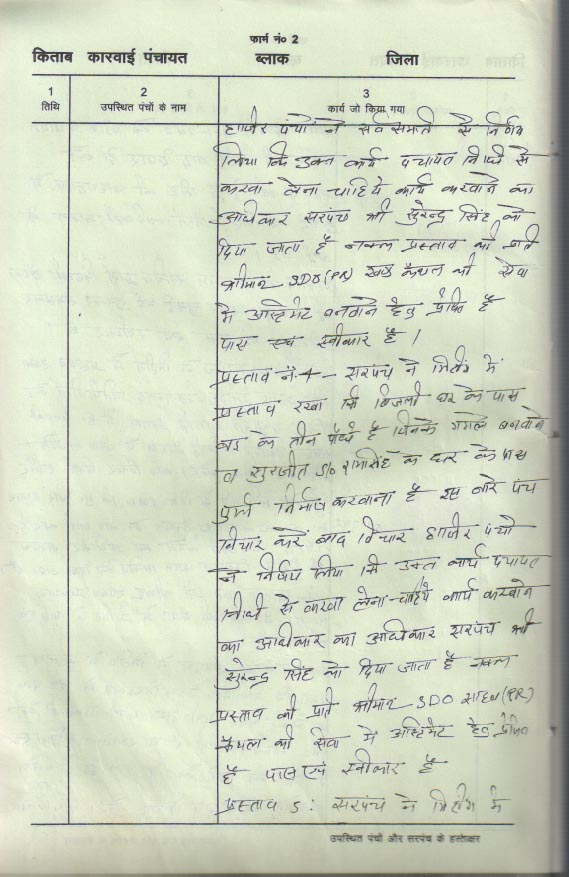 फार्म नं० 2
किताब कारवाई पंचायत ब्लाक जिला
1 2 3
तिथि उपस्थित पंचों के नाम कार्य जो किया गया
हाजीर पंचो ने सर्व समती से निर्णय
लिया कि उक्त कार्य पंचायत निधि से
करवा लेना चाहिये कार्य करवाने का
अधिकार सरपंच श्री सुरेन्द्र सिंह को
दिया जाता है नकल प्रस्ताव की प्रति
श्रीमान SDO (PR) कैथल की सेवा
मे अस्टिमेट बनवाने हेतु प्रेषित है
पास स्वीकार है।
प्रस्ताव नं. 4 - सरपंच ने मिटिंग में
प्रस्ताव रखा कि बिजली घर के पास
बड के तीन पौधे है जिनके गमले बनवाने
व सुरजीत S/o रामसिंह के घर के पास
निर्माण करवाना है इस बारे पंच
विचार करे बाद विचार हाजीर पंचो
ने निर्णय लिया कि उक्त कार्य पंचायत
निधी से करवा लेना चाहिये कार्य करवाने
का अधिकार का अधिकार सरपंच श्री
सुरेन्द्र सिंह को दिया जाता है नकल
प्रस्ताव की प्रति श्रीमान SDO साहब (PR)
कैथल की सेवा मे अस्टिमेट हेतु प्रेषित
है पास एवं स्वीकार है
प्रस्ताव 5 : सरपंच ने मिटींग मे
उपस्थित पंचों और सरपंच के हस्ताक्षर